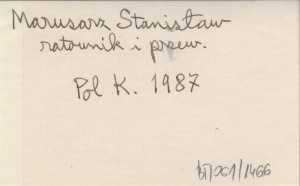 Marusarz Stanisław
ratownik i przew.
Pol K. 1987
/961/1466